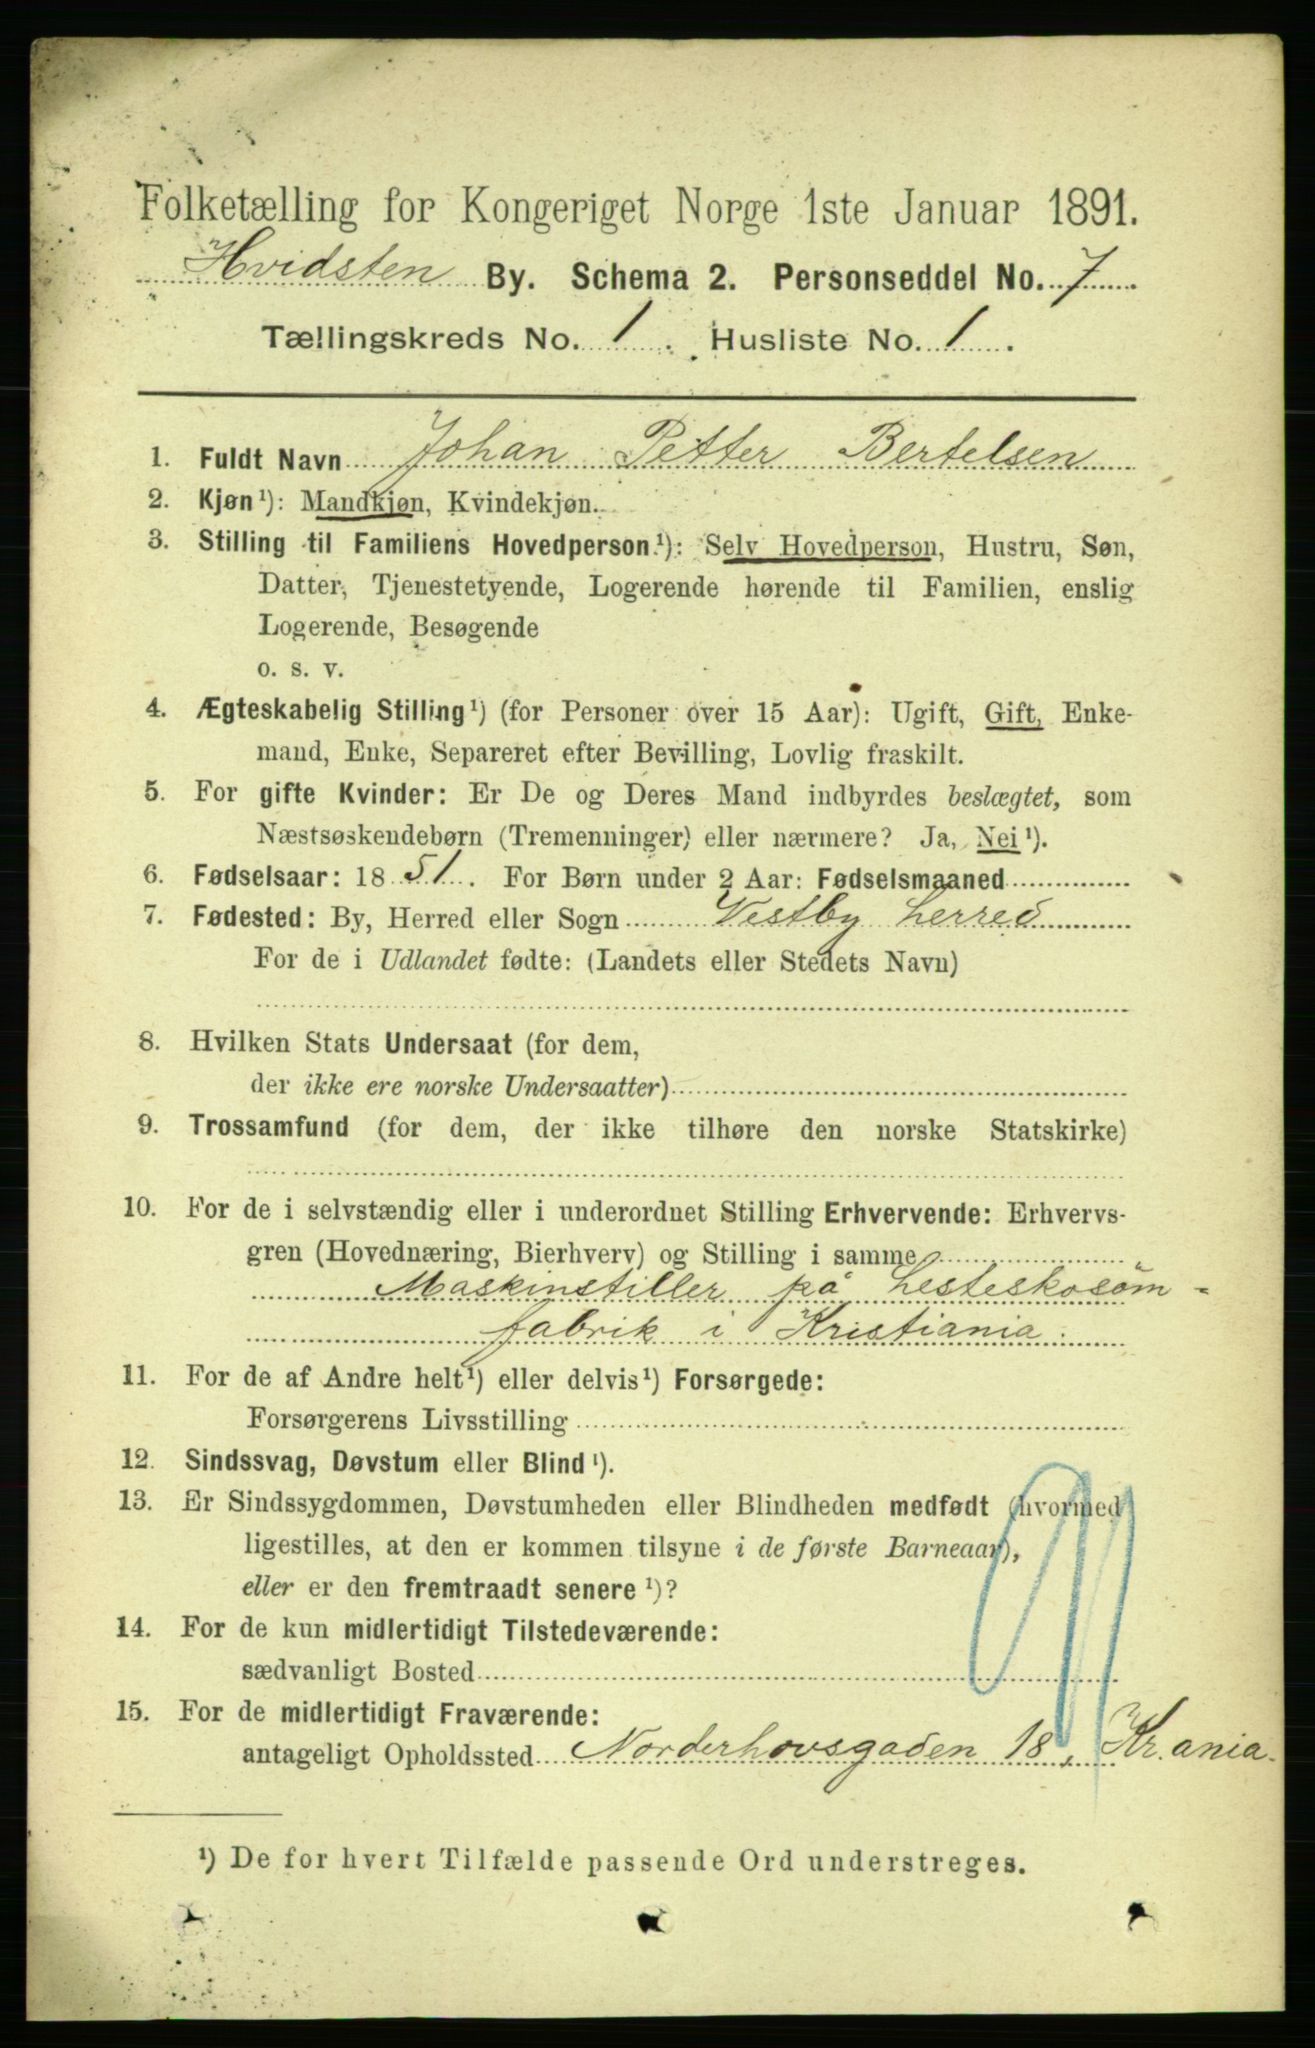 Folketælling for Kongeriget Norge 1ste Januar 1891.
Hvidsten By. Schema 2. Personseddel No. 7
Tællingskreds No. 1. Husliste No. 1.
1. Fuldt Navn Johan Petter Bertelsen
2. Kjøn¹): Mandkjøn, Kvindekjøn.
3. Stilling til Familiens Hovedperson¹): Selv Hovedperson, Hustru, Søn,
Datter, Tjenestetyende, Logerende hørende til Familien, enslig
Logerende, Besøgende
o. s. v.
4. Ægteskabelig Stilling¹) (for Personer over 15 Aar): Ugift, Gift, Enke-
mand, Enke, Separeret efter Bevilling, Lovlig fraskilt.
5. For gifte Kvinder: Er De og Deres Mand indbyrdes beslægtet, som
Næstsøskendebørn (Tremenninger) eller nærmere? Ja, Nei¹).
6. Fødselsaar: 1851. For Børn under 2 Aar: Fødselsmaaned
7. Fødested: By, Herred eller Sogn Vestby herred
For de i Udlandet fødte: (Landets eller Stedets Navn)
8. Hvilken Stats Undersaat (for dem,
der ikke ere norske Undersaatter)
9. Trossamfund (for dem, der ikke tilhøre den norske Statskirke)
10. For de i selvstændig eller i underordnet Stilling Erhvervende: Erhvervs-
gren (Hovednæring, Bierhverv) og Stilling i samme
Maskinstiller på hesteskosöm-
fabrik i Kristiania.
11. For de af Andre helt¹) eller delvis¹) Forsørgede:
Forsørgerens Livsstilling
12. Sindssvag, Døvstum eller Blind¹).
13. Er Sindssygdommen, Døvstumheden eller Blindheden medfødt (hvormed
ligestilles, at den er kommen tilsyne i de første Barneaar),
eller er den fremtraadt senere¹)?
14. For de kun midlertidigt Tilstedeværende:
sædvanligt Bosted
15. For de midlertidigt Fraværende:
antageligt Opholdssted Norderhovsgaden 18, Kr.ania.
¹) De for hvert Tilfælde passende Ord understreges.